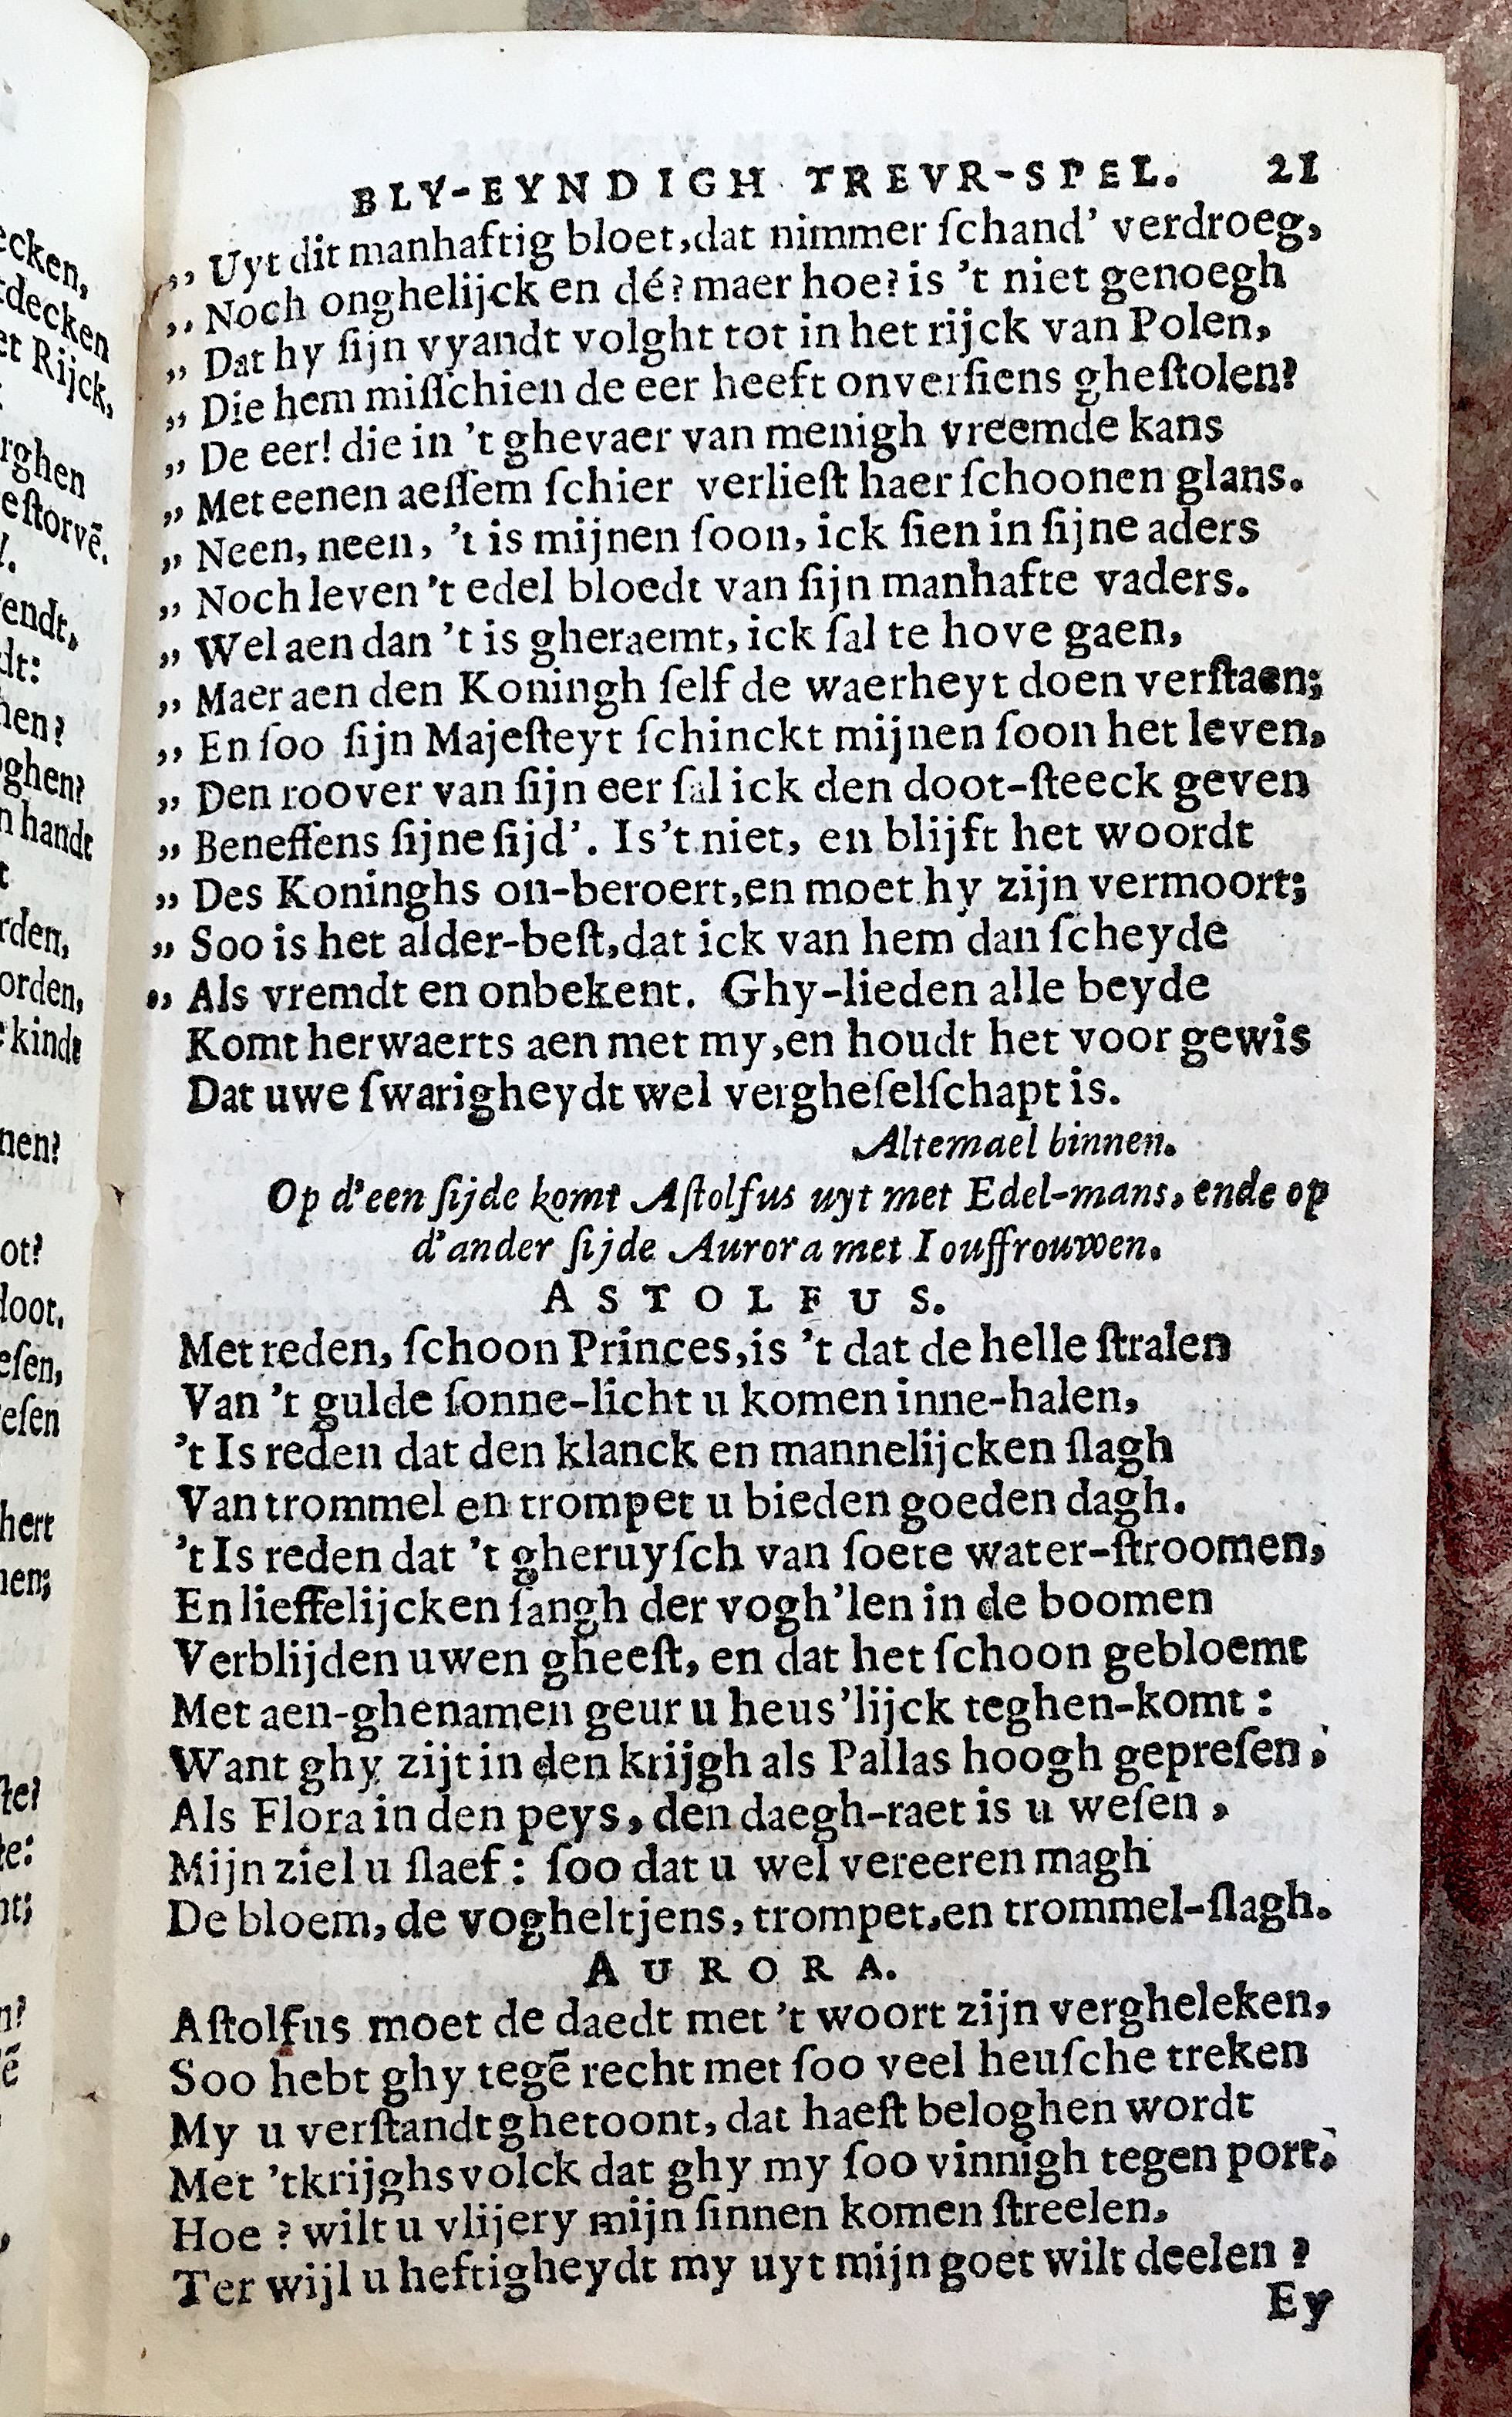 ecken,
tdecken
et Rijck,
rghen
eſtorvē.
endt,
dt:
hen?
oghen?
n handt
t
rden,
orden,
kindt
nen?
ot?
doot.
eſen,
eſen
hert
nen;
ſte?
te:
nt;
n?
ē
BLY-EYNDIGH TREVR-SPEL. 21
„ Uyt dit manhaftig bloet, dat nimmer ſchand' verdroeg,
„ Noch onghelijck en dé? maer hoe? is 't niet genoegh
„ Dat hy ſijn vyandt volght tot in het rijck van Polen,
„ Die hem miſſchien de eer heeft onverſiens gheſtolen?
„ De eer! die in 't ghevaer van menigh vreemde kans
„ Met eenen aeſſem ſchier verlieſt haer ſchoonen glans.
„ Neen, neen, 't is mijnen ſoon, ick ſien in ſijne aders
„ Noch leven 't edel bloedt van ſijn manhafte vaders.
„ Wel aen dan 't is gheraemt, ick ſal te hove gaen,
„ Maer aen den Koningh ſelf de waerheyt doen verſtaen;
„ En ſoo ſijn Majeſteyt ſchinckt mijnen ſoon het leven,
„ Den roover van ſijn eer ſal ick den doot-ſteeck geven
„ Beneffens ſijne ſijd'. Is't niet, en blijft het woordt
„ Des Koninghs on-beroert, en moet hy zijn vermoort;
„ Soo is het alder-beſt, dat ick van hem dan ſcheyde
„ Als vremdt en onbekent. Ghy-lieden alle beyde
Komt herwaerts aen met my, en houdt het voor gewis
Dat uwe ſwarigheydt wel vergheſelſchapt is.
Altemael binnen.
Op d'een ſijde komt Aſtolfus uyt met Edel-mans, ende op
d'ander ſijde Aurora met Iouffrouwen.
ASTOLFUS.
Met reden, ſchoon Princes, is 't dat de helle ſtralen
Van 't gulde ſonne-licht u komen inne-halen,
't Is reden dat den klanck en mannelijcken ſlagh
Van trommel en trompet u bieden goeden dagh.
't Is reden dat 't gheruyſch van ſoete water-ſtroomen,
En lieffelijcken ſangh der vogh'len in de boomen
Verblijden uwen gheeſt, en dat het ſchoon gebloemt
Met aen-ghenamen geur u heus'lijck teghen-komt:
Want ghy zijt in den krijgh als Pallas hoogh gepreſen,
Als Flora in den peys, den daegh-raet is u weſen,
Mijn ziel u ſlaef: ſoo dat u wel vereeren magh
De bloem, de vogheltjens, trompet, en trommel-ſlagh.
AURORA.
Aſtolfus moet de daedt met 't woort zijn vergheleken,
Soo hebt ghy tegē recht met ſoo veel heuſche treken
My u verſtandt ghetoont, dat haeſt beloghen wordt
Met 't krijghsvolck dat ghy my ſoo vinnigh tegen port.
Hoe? wilt u vlijery mijn ſinnen komen ſtreelen,
Ter wijl u heftigheydt my uyt mijn goet wilt deelen?
Ey